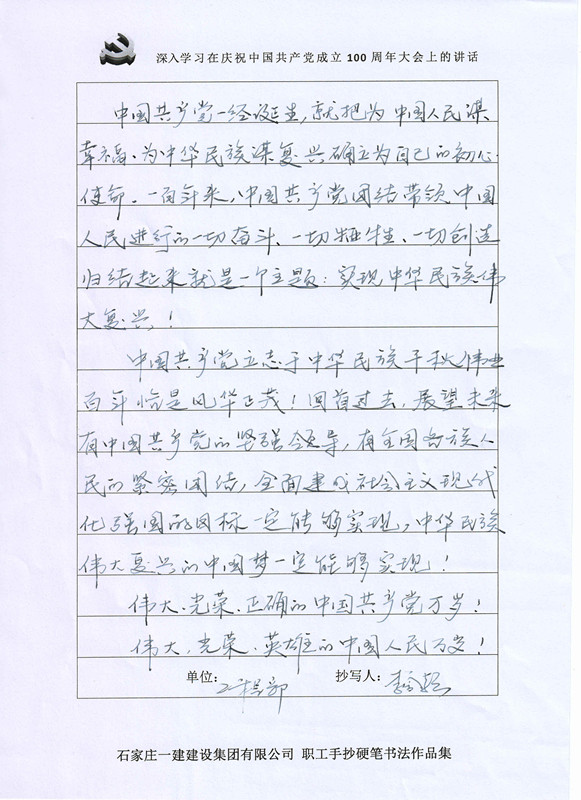 深入学习在庆祝中国共产党成立100周年大会上的讲话
中国共产党一经诞生,就把为中国人民谋
幸福、为中华民族谋复兴确立为自己的初心
使命。一百年来,中国共产党团结带领中国
人民进行的一切奋斗、一切牺牲、一切创造
归结起来就是一个主题:实现中华民族伟
大复兴!
中国共产党立志于中华民族千秋伟业
百年恰是风华正茂!回首过去,展望未来
有中国共产党的坚强领导,有全国各族人
民的紧密团结,全面建成社会主义现代
化强国的目标一定能够实现,中华民族
伟大复兴的中国梦一定能够实现!
伟大、光荣、正确的中国共产党万岁!
伟大、光荣、英雄的中国人民万岁!
单位: 工程部 抄写人: 李
石家庄一建建设集团有限公司 职工手抄硬笔书法作品集